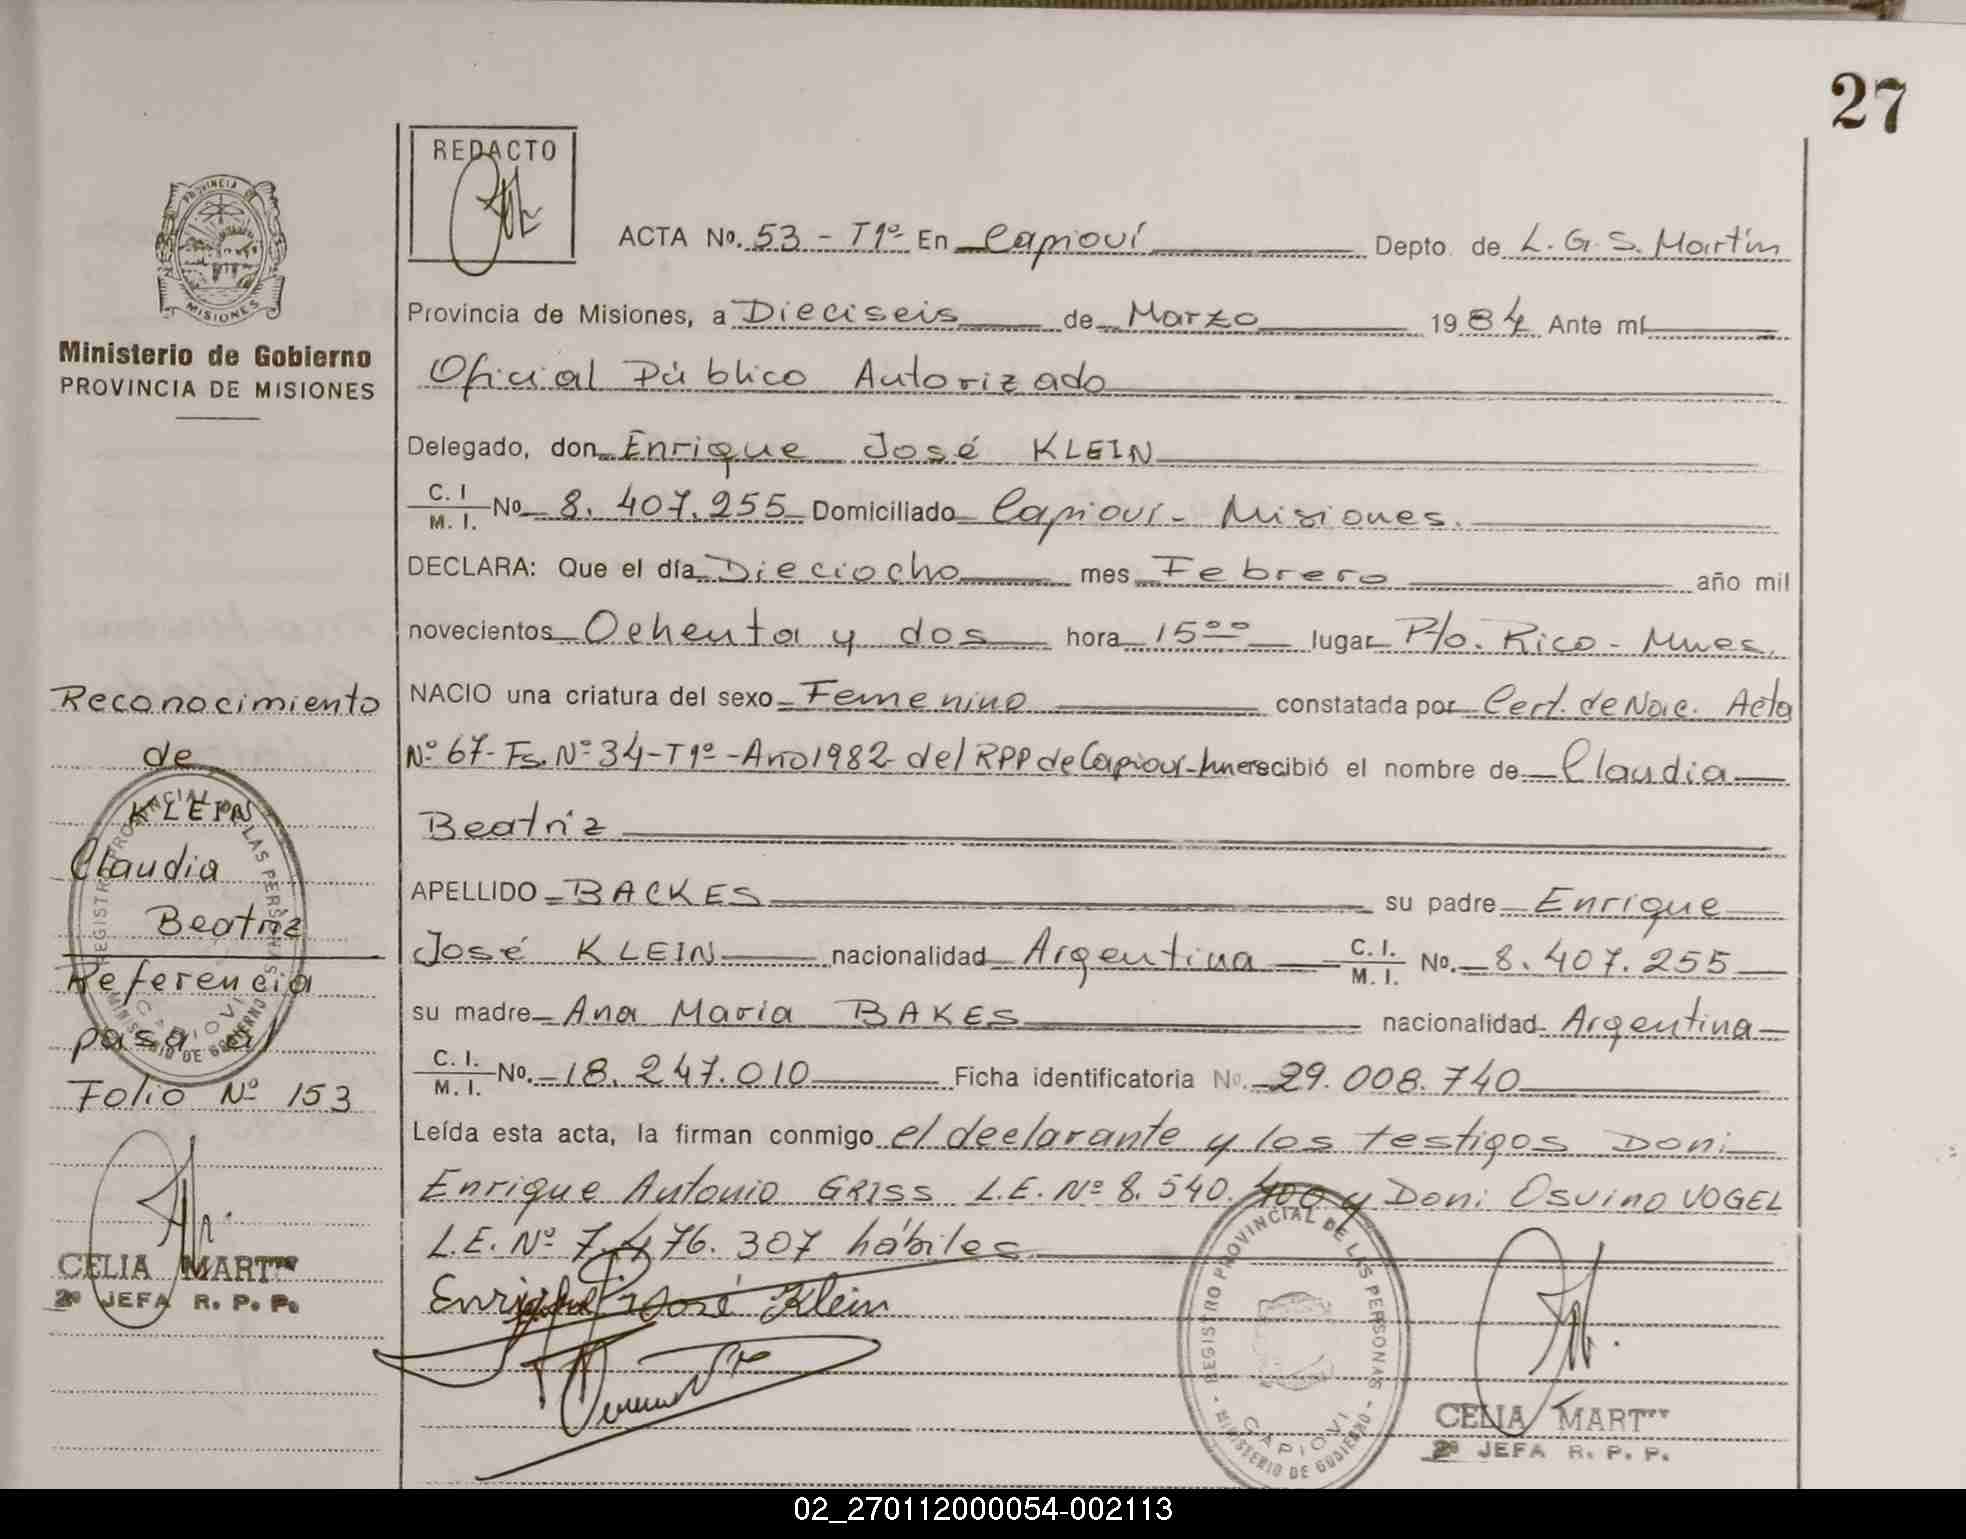 27
REDACTO
ACTA No. 53 - T1º En Capioví Depto. de L. G. S. Martín
Provincia de Misiones, a Dieciseis de Marzo 1984 Ante mí
Oficial Público Autorizado
Delegado, don Enrique José KLEIN
C. I. / M. I. No 8.407.255 Domiciliado Capioví - Misiones.
DECLARA: Que el día Dieciocho mes Febrero año mil
novecientos Ochenta y dos hora 15ºº lugar Pto. Rico - Mnes.
NACIO una criatura del sexo Femenino constatada por Cert. de Nac. Acta
Nº 67- Fs. Nº 34 - T1º - Año 1982 del RPP de Capioví- Mnes recibió el nombre de Claudia
Beatriz
APELLIDO BACKES su padre Enrique
José KLEIN nacionalidad Argentina C. I. / M. I. No. 8.407.255
su madre Ana Maria BAKES nacionalidad Argentina
C. I. / M. I. No. 18.247.010 Ficha identificatoria No. 29.008.740
Leída esta acta, la firman conmigo el declarante y los testigos Don:
Enrique Antonio GRISS L.E. Nº 8.540.400 y Don: Osvino VOGEL
L.E. Nº 7.476.307 hábiles
Enrique José Klein
REGISTRO PROVINCIAL DE LAS PERSONAS
CAPIOVI
MINISTERIO DE GOBIERNO
CELIA MART
2º JEFA R. P. P.
PROVINCIA DE
MISIONES
Ministerio de Gobierno
PROVINCIA DE MISIONES
Reconocimiento
de
KLEIN
Claudia
Beatriz
Referencia
pasa al
Folio Nº 153
REGISTRO PROVINCIAL DE LAS PERSONAS
CAPIOVI
MINISTERIO DE GOBIERNO
CELIA MART
2º JEFA R. P. P.
02_270112000054-002113